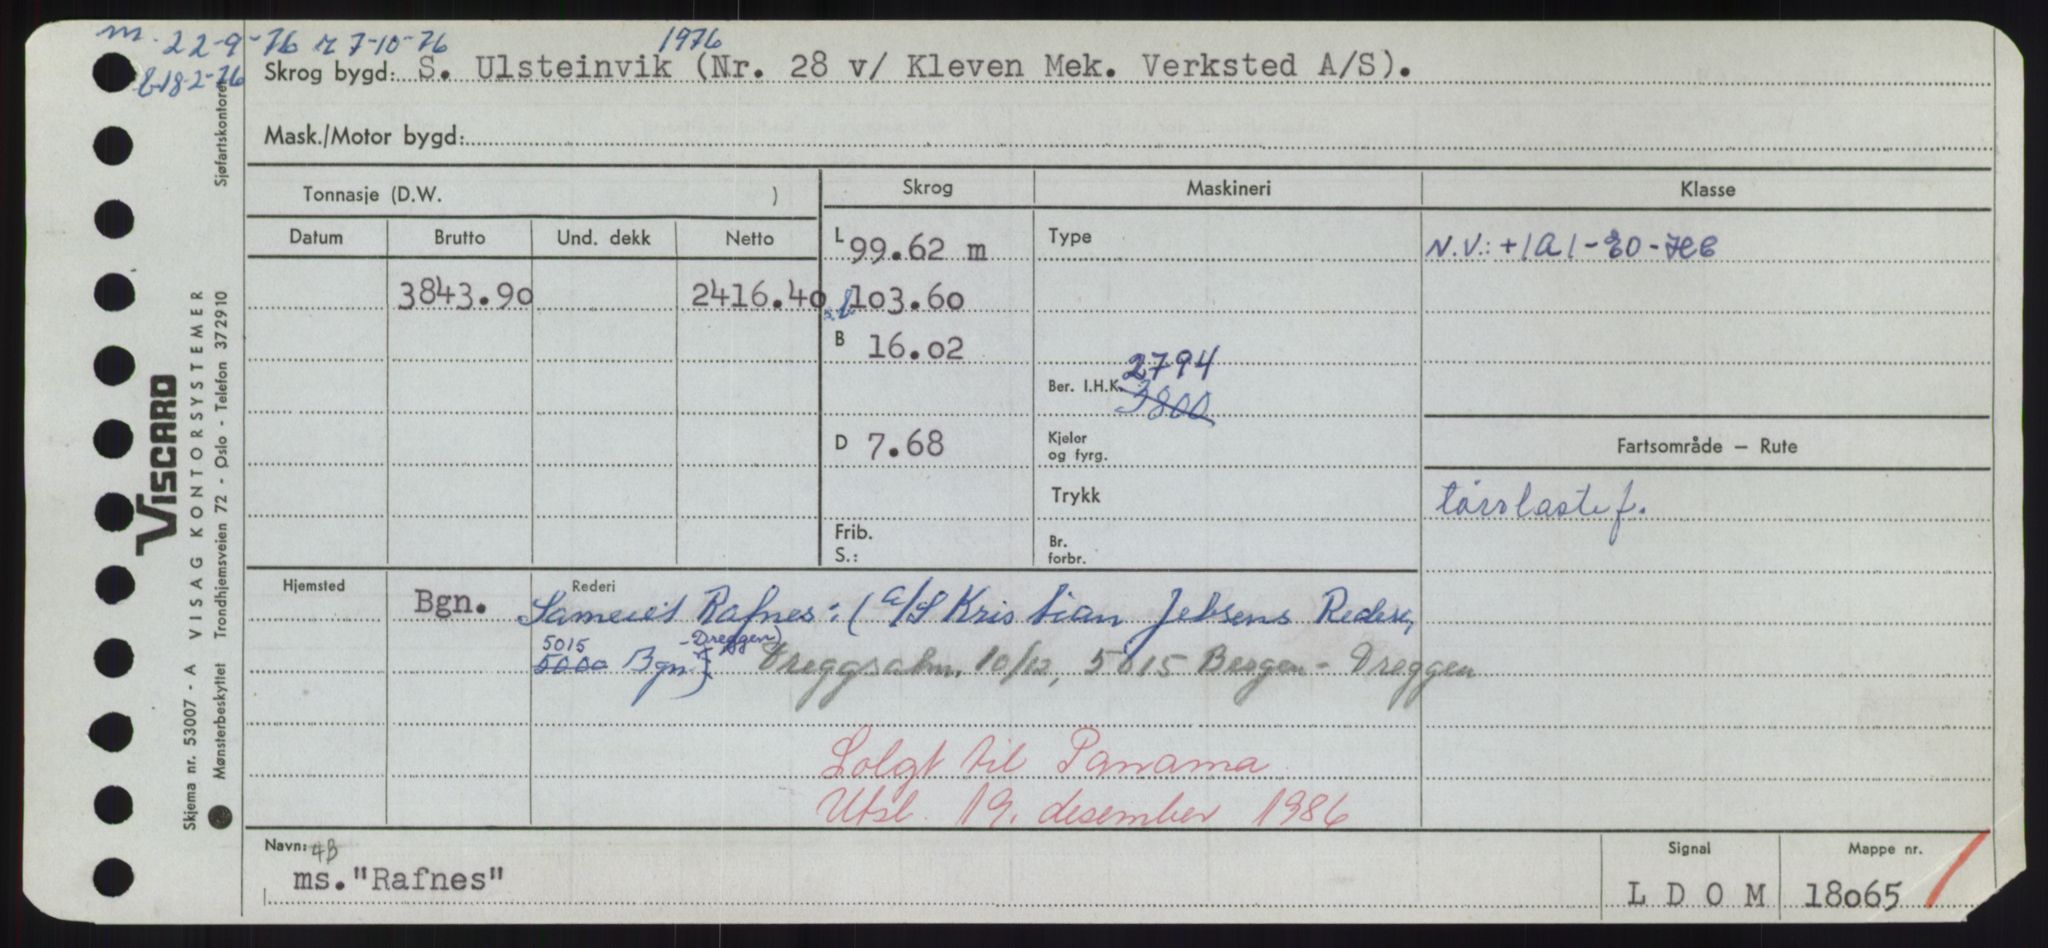 m. 22-9-76 r 7-10-76
b-18-2-76
1976
Skrog bygd: S. Ulsteinvik (Nr. 28 v/ Kleven Mek. Verksted A/S).
Mask./Motor bygd:
Tonnasje (D.W. )
Skrog
Maskineri
Klasse
Datum Brutto Und. dekk Netto
L 99.62 m
Type
N.V.: +1A1-E0-
3843.90 2416.40
103.60
B 16.02
2794
Ber. I.H.K. 3800
D 7.68
Kjeler
og fyrg.
Fartsområde – Rute
Trykk
tørrlastef.
Frib.
S.:
Br.
forbr.
Hjemsted
Rederi
Bgn. Sameiet Rafnes: (A/S Kristian Jebsens Rederi,
5015 -Dreggen)
5000 Bgn.) Dreggsalm. 10/12, 5015 Bergen - Dreggen
Solgt til Panama
Utsl. 19. desember 1986
Navn: 4B
ms."Rafnes"
Signal
L D O M
Mappe nr.
18065
VISCARD
Skjema nr. 53007 - A VISAG KONTORSYSTEMER
Mønsterbeskyttet Trondhjemsveien 72 - Oslo - Telefon 372910 Sjøfartskontoret